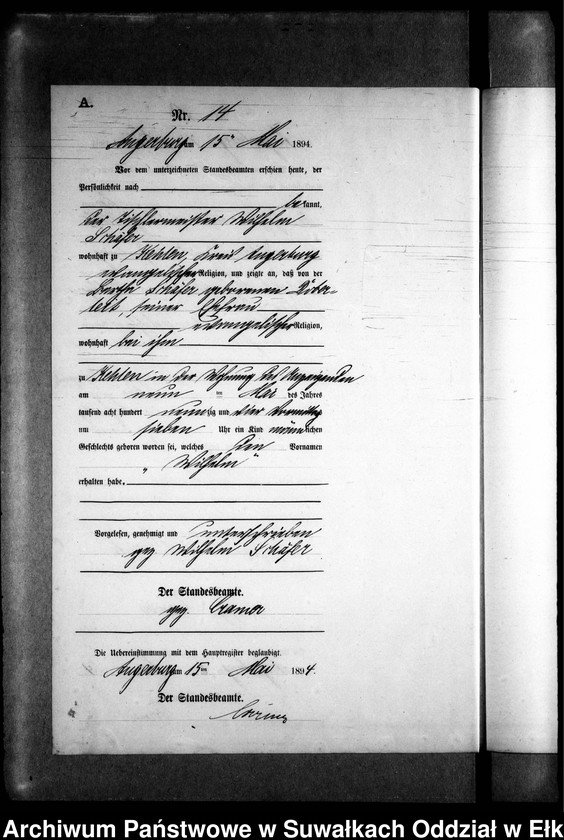 A.
Nr. 14
Angerburg am 15ten Mai 1894.
Vor dem unterzeichneten Standesbeamten erschien heute, der
Persönlichkeit nach
bekannt,
der Tischlermeister Wilhelm
Schäfer
wohnhaft zu Kehlen, Kreis Angerburg
evangelischer Religion, und zeigte an, daß von der
Bertha Schäfer geborenen
seiner Ehefrau
evangelischer Religion,
wohnhaft bei ihm
zu Kehlen in der Wohnung des Anzeigenden
am neunten Mai des Jahres
tausend acht hundert neunzig und vier Vormittags
um sieben Uhr ein Kind männlichen
Geschlechts geboren worden sei, welches den Vornamen
„Wilhelm“
erhalten habe.
Vorgelesen, genehmigt und unterschrieben
gez Wilhelm Schäfer
Der Standesbeamte.
gez.
Die Uebereinstimmung mit dem Hauptregister beglaubigt.
Angerburg am 15ten Mai 1894.
Der Standesbeamte.
Archiwum Państwowe w Suwałkach Oddział w Ełk